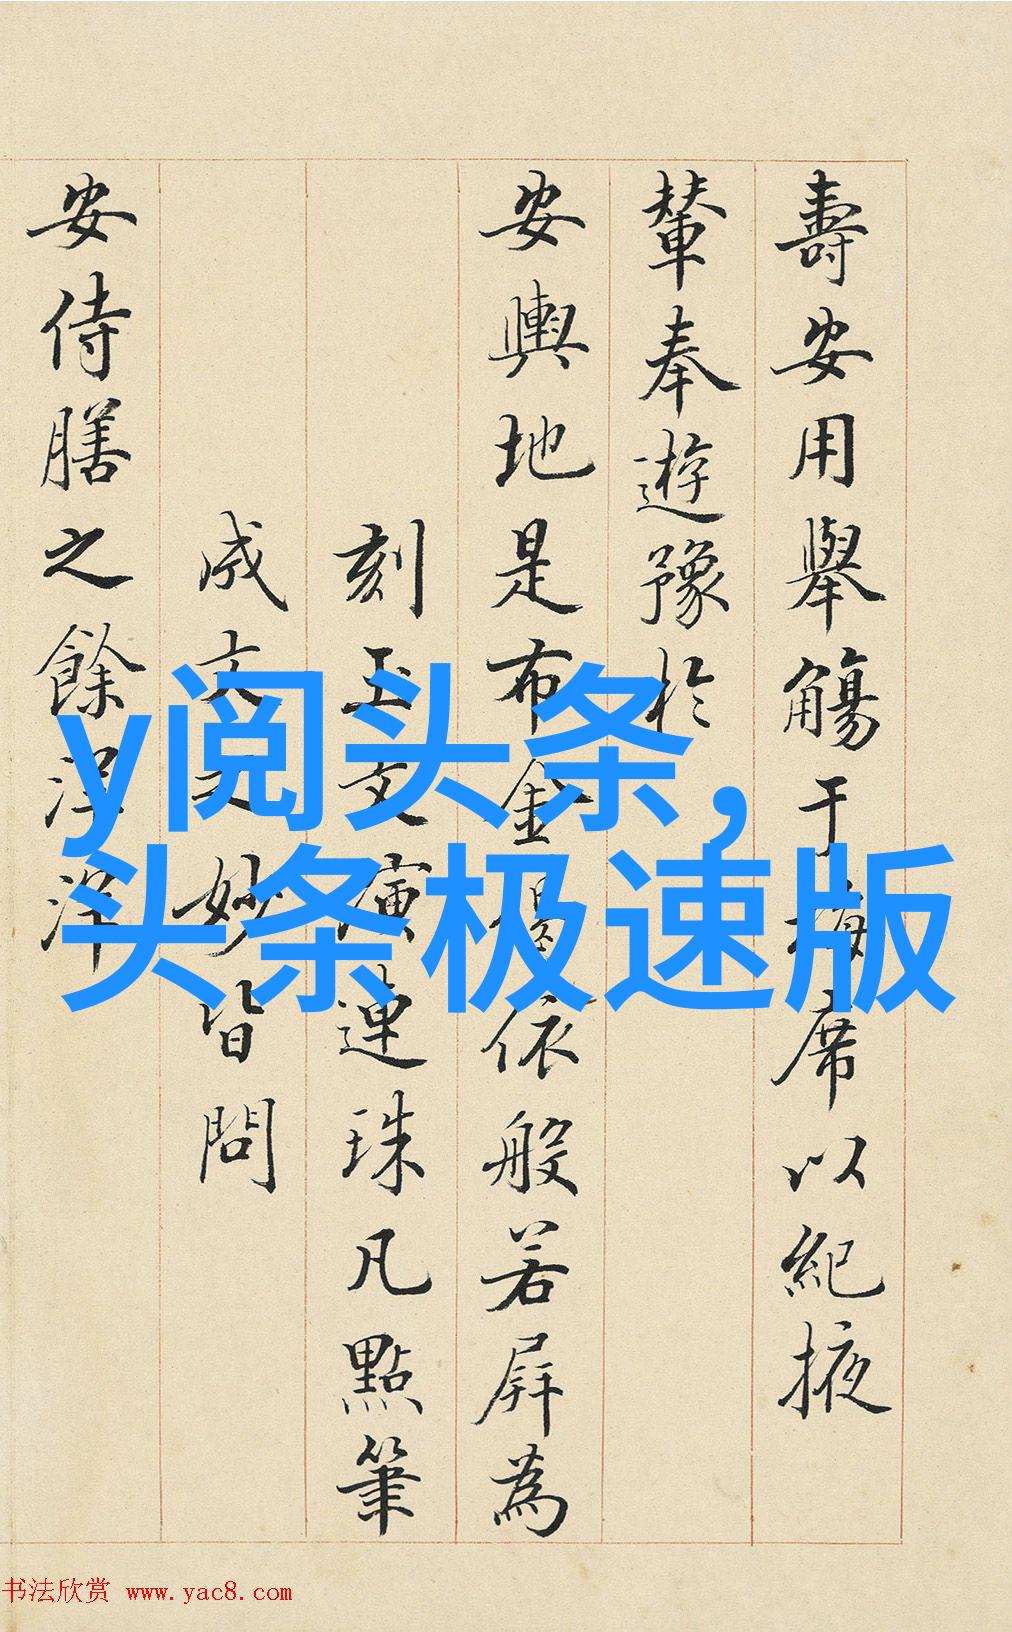 壽安用舉觴于席以紀掖
輦奉遊豫於
安輿地是布金依般若屏為
刻玉文演連珠凡點筆
成文妙皆問
安侍膳之餘洋
y阅头条,
头条极速版
书法欣赏 www.yac8.com